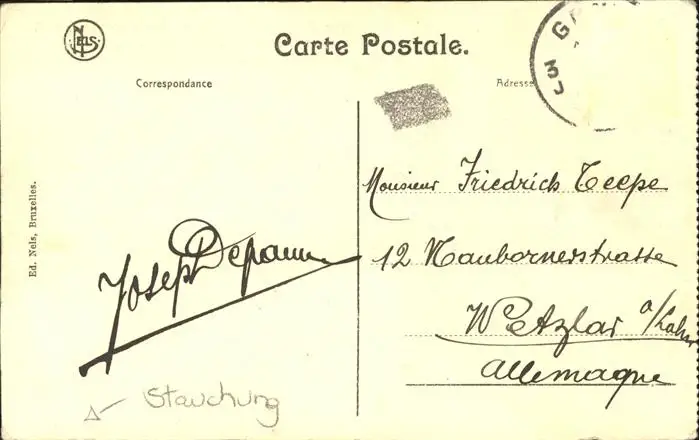 NELS
Carte Postale.
Correspondance
Adresse
Ed. Nels, Bruxelles.
Monsieur Friedrich Teepe
12 Naubornerstrasse
Wetzlar a/Lahn
Allemagne
Joseph Depauw
Stauchung